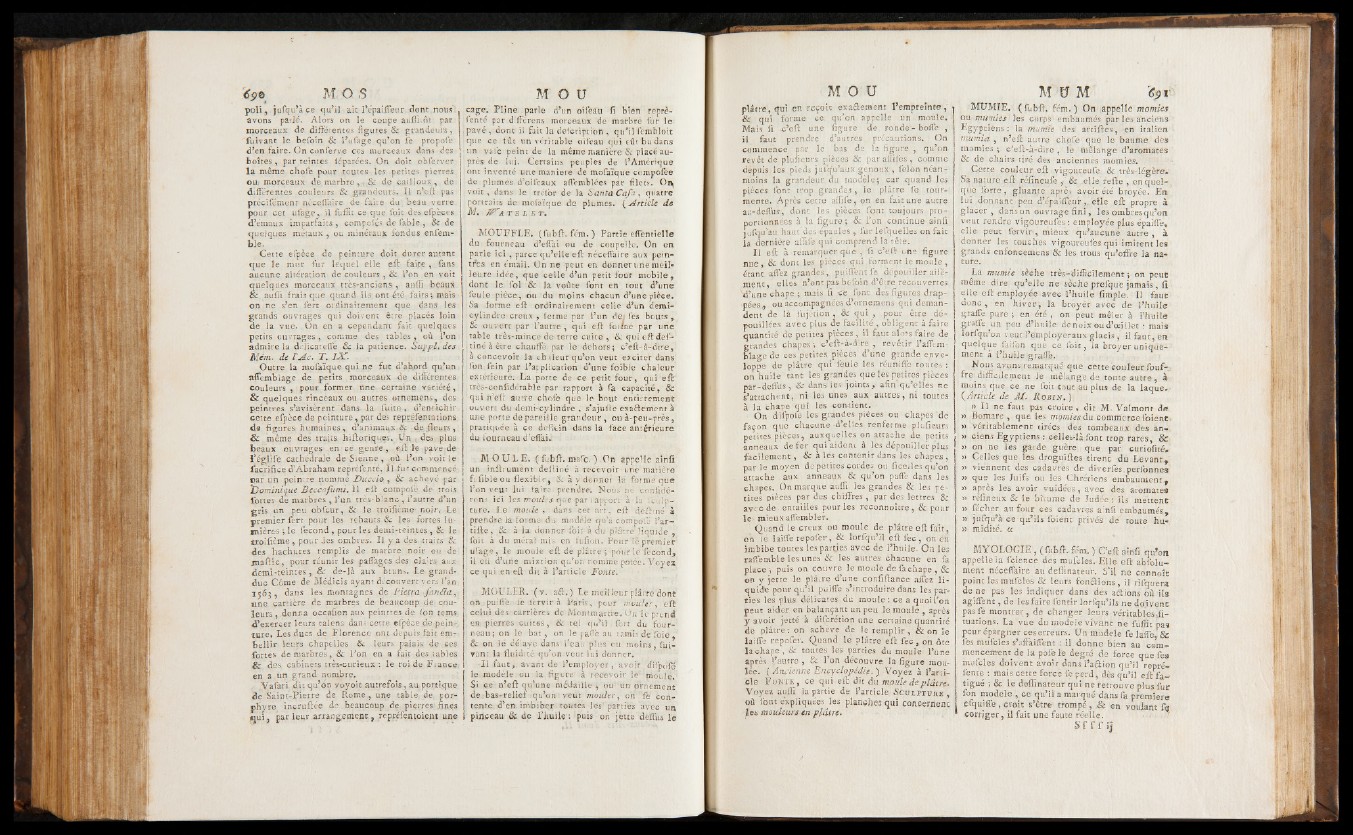 690 M O S M O U
poli, juſqu'à ce qu'il ait l'épaiſſeur dont nous
avons parlé. Alors on le coupe auſſitôt par
morceaux de différentes figures & grandeurs,
ſuivant le beſoin & l'uſage qu'on ſe propoſe
d'en faire. On conſerve ces morceaux dans des
boîtes, par teintes ſéparées. On doit obſerver
la même choſe pour toutes les petites pierres
ou morceaux de marbre, & de cailloux, de
différentes couleurs & grandeurs. Il n'eſt pa-
préciſément néceſſaire de faire du beau verre
pour cet uſage, il ſuffit ce que ſoit des eſpèces
d'émaux imparfaits, compoſés de ſable, & de
quelques métaux, ou minéraux fondus enſem-
ble.
Cette eſpèce de peinture doit durer autant
que le mur ſur lequel elle eſt faite, ſans
aucune altération de couleurs, & l'on en voit
quelques morceaux très-anciens, auſſi beaux
& auſſi frais que quand ils ont été faits; mais
on ne s'en ſert ordinairement que dans les
grands ouvrages qui doivent être placés loin
de la vue. On en a cependant fait quelques
petits ouvrages, comme des tables, où l'on
admire la délicateſſe & la patience. Suppl. des
Mém. de l'Ac. T. IX.
Outre la moſaïque qui ne fut d'abord qu'un
aſſemblage de petits morceaux de différentes
couleurs, pour former une certaine variété,
& quelques rinceaux ou autres ornemens, des
peintres s'aviſèrent dans la ſuite, d'enrichir
cette eſpèce de peinture, par des repréſentations
de figures humaines, d'animaux & de fleurs,
& même des traits hiſtoriques. Un des plus
beaux ouvrages en ce genre, eſt le pavé de
l'égliſe cathédrale de Sienne, où l'on voit le
ſacrifice d'Abraham repréſenté. Il fut commencé
par un peintre nommé Duccio, & achevé par
Dominique Beccafumi. Il eſt compoſé de trois
ſortes de marbres, l'un très-blanc, l'autre d'un
gris un peu obſcur, & le troiſième noir. Le
premier ſert pour les rehauts & les fortes lu-
mières; le ſecond, pour les demi-teintes, & le
troiſième, pour les ombres. Il y a des traits &
des hachures remplis de marbre noir ou de
maſtic, pour réunir les paſſages des clairs aux
demi-teintes, & de-là aux bruns. Le grand-
duc Côme de Médicis ayant découvert vers l'an
1563, dans les montagnes de Pietra ſancta,
une carrière de marbres de beaucoup de cou-
leurs, donna occaſion aux peintres de ſon tems
d'exercer leurs talens dans cette eſpèce de pein-
ture. Les ducs de Florence ont depuis fait em-
bellir leurs chapelles & leurs palais de ces
ſortes de marbres, & l'on en a fait des tables
& des cabinets très-curieux: le roi de France
en a un grand nombre.
Vaſari dit qu'on voyoit autrefois, au portique
de Saint-Pierre de Rome, une table de por-
phyre incruſtée de beaucoup de pierres fines
qui, par leur arrangement, repréſentoient une
cage. Pline parle d'un oiſeau ſi bien repré-
ſenté par différens morceaux de marbre ſur le
pavé, dont il fait la deſcription, qu'il ſembloit
que ce fût un véritable oiſeau qui eût bu dans
un vaſe peint de la même manière & placé au-
près de lui. Certains peuples de l'Amérique
ont inventé une manière de moſaïque compoſée
de plumes d'oiſeaux aſſemblées par filets. On
voit, dans le tréſor de la Santa Caſa, quatre
portraits de moſaïque de plumes. (Article de
M. WATELET.
MOUFFLE. (ſubſt. fém.) Partie eſſentielle
du fourneau d'eſſai ou de coupelle. On en
parle ici, parce qu'elle eſt néceſſaire aux pein-
tres en émail. On ne peut en donner une meil-
leure idée, que celle d'un petit four mobile,
dont le ſol & la voûte font en tout d'une
ſeule pièce, ou du moins chacun d'une pièce.
Sa forme eſt ordinairement celle d'un demi-
cylindre creux, fermé par l'un de ſes bouts,
& ouvert par l'autre, qui eſt formé par une
table très-mince de terre cuite, & qui eſt deſ-
tiné à être chauffé par le dehors; c'eſt-à-dire,
à concevoir la chaleur qu'on veut exciter dans
ſon ſein par l'application d'une foible chaleur
extérieure. La porte de ce petit four, qui eſt
très-conſidérable par rapport à ſa capacité, &
qui n'eſt autre choſe que le bout entièrement
ouvert du demi-cylindre, s'ajuſte exactement à
une porte de pareille grandeur, ou à-peu-près,
pratiquée à ce deſſein dans la face antérieure
du fourneau d'eſſai.
MOULE. (ſubſt. maſc.) On appelle ainſi
un inſtrument deſtiné à recevoir une matière
fuſible ou flexible, & à y donner la forme que
l'on veut lui faire prendre. Nous ne conſidé-
rons ici les moules que par rapport à la ſculp-
ture. Le moule, dans cet art, eſt deſtiné à
prendre la forme du modèle qu'a compoſé l'ar-
tiſte, & à la donner ſoit à du plâtre liquide,
ſoit à du métal mis en fuſion. Pour le premier
uſage, le moule eſt de plâtre; pour le ſecond,
il eſt d'une mixtion qu'on nomme potée. Voyez
ce qui en eſt dit à l'article Fonte.
MOULER. (v. act.) Le meilleur plâtre dont
on puiſſe ſe ſervir à Paris, pour mouler, eſt
celui des carrières de Montmartre. On le prend
en pierres cuites, & tel qu'il ſort du four-
neau; on le bat, on le paſſe au tamis de ſoie,
& on le délaye dans l'eau plus ou moins, ſui-
vant la fluidité qu'on veut lui donner.
Il faut, avant de l'employer, avoir diſpoſé
le modèle ou la figure à recevoir le moule.
Si ce n'eſt qu'une médaille, ou un ornement
de bas-relief qu'on veut mouler, on ſe con-
tente d'en imbiber toutes les parties avec un
pinceau & de l'huile: puis on jette deſſus le
M O U M U M 691
plâtre, qui en reçoit exactement l'empreinte,
& qui forme ce qu'on appelle un moule.
Mais ſi c'eſt une figure de ronde-boſſe,
il faut prendre d'autres précautions. On
commence par le bas de la figure, qu'on
revêt de pluſieurs pièces & par aſſiſes, comme
depuis les pieds juſqu'aux genoux, ſelon néan-
moins la grandeur du modèle; car quand les
pièces ſont trop grandes, le plâtre ſe tour-
mente. Après cette aſſiſe, on en fait une autre
au-deſſus, dont les pièces ſont toujours pro-
portionnées à la figure; & l'on continue ainſi
juſqu'au haut des épaules, ſur leſquelles on fait
la dernière aſſiſe qui comprend la tête.
Il eſt à remarquer que, ſi c'eſt une figure
nue, & dont les pièces qui forment le moule,
étant aſſez grandes, puiſſent ſe dépouiller aiſé-
ment, elles n'ont pas beſoin d'être recouvertes
d'une chape; mais ſi ce ſont des figures drap-
pées, ou accompagnées d'ornemens qui deman-
dent de la ſujétion, & qui, pour être dé-
pouillées avec plus de facilité, obligent à faire
quantité de petites pièces, il faut alors faire de
grandes chapes; c'eſt-à-dire, revêtir l'aſſem-
blage de ces petites pièces d'une grande enve-
loppe de plâtre qui ſeule les réuniſſe toutes:
on huile tant les grandes que les petites pièces
par-deſſus, & dans les joints, afin qu'elles ne
s'attachent, ni les unes aux autres, ni toutes
à la chape qui les contient.
On diſpoſe les grandes pièces ou chapes de
façon que chacune d'elles renferme pluſieurs
petites pièces, auxquelles on attache de petits
anneaux de fer qui aident à les dépouiller plus
facilement, & à les contenir dans les chapes,
par le moyen de petites cordes ou ficelles qu'on
attache aux anneaux & qu'on paſſe dans les
chapes. On marque auſſi les grandes & les pe-
tites pièces par des chiffres, par des lettres &
avec de entailles pour les reconnoître, & pour
les mieux aſſembler.
Quand le creux ou moule de plâtre eſt fait,
on le laiſſe repoſer, & lorſqu'il eſt ſec, on en
imbibe toutes les parties avec de l'huile. On les
raſſemble les unes & les autres chacune en ſa
place, puis on couvre le moule de ſa chape, &
on y jette le plâtre d'une conſiſtance aſſez li-
quide pour qu'il puiſſe s'introduire dans les par-
ties les plus délicates du moule: ce à quoi l'on
peut aider en balançant un peu le moule, après
y avoir jetté à diſcrétion une certaine quantité
de plâtre: on achève de le remplir, & on le
laiſſe repoſer. Quand le plâtre eſt ſec, on ôte
la chape, & toutes les parties du moule l'une
après l'autre, & l'on découvre la figure mou-
lée. (Ancienne Encyclopédie.) Voyez à l'arti-
cle FONTE, ce qui eſt dit du moule de plâtre.
Voyez auſſi la partie de l'article SCULPTURE,
où ſont expliquées les planches qui concernent
les mouleurs en plâtre.
MUMIE. (ſubſt. fém.) On appelle momies
ou mumies les corps embaumés par les anciens
Egyptiens: la mumie des artiſtes, en italien
mumia, n'eſt autre choſe que le baume des
momies; c'eſt-à-dire, le mélange d'aromates
& de chairs tiré des anciennes momies.
Cette couleur eſt vigoureuſe & très-légère.
Sa nature eſt réſineuſe, & elle reſte, en quel-
que ſorte, gluante après avoir été broyée. En
lui donnant peu d'épaiſſeur, elle eſt propre à
glacer, dans un ouvrage fini, les ombres qu'on
veut rendre vigoureuſes: employée plus épaiſſe,
elle peut ſervir, mieux qu'aucune autre, à
donner les touches vigoureuſes qui imitent les
grands enfoncemens & les trous qu'offre la na-
ture.
La mumie sèche très-difficilement; on peut
même dire qu'elle ne sèche preſque jamais, ſi
elle eſt employée avec l'huile ſimple. Il faut
donc, en hiver, la broyer avec de l'huile
graſſe pure; en été, on peut mêler à l'huile
graſſe un peu d'huile de noix ou d'œillet: mais
lorſqu'on veut l'employer aux glacis, il faut, en
quelque ſaiſon que ce ſoit, la broyer unique-
ment à l'huile graſſe.
Nous avons remarqué que cette couleur ſouf-
fre difficilement le mélange de toute autre, à
moins que ce ne ſoit tout au plus de la laque.
(Article de M. ROBIN.)
» Il ne faut pas croire, dit M. Valmont de
» Bomare, que les mumies du commerce ſoient
» véritablement tirées des tombeaux des an-
» ciens Egyptiens: celles-là ſont trop rares, &
» on ne les garde guère que par curioſité.
» Celles que les droguiſtes tirent du Levant,
» viennent des cadavres de diverſes perſonnes
» que les Juifs ou les Chrétiens embaument,
» après les avoir vuidées, avec des aromates
» réſineux & le bitume de Judée: ils mettent
» ſécher au four ces cadavres ainſi embaumés,
» juſqu'à ce qu'ils ſoient privés de toute hu-
» midité. «
MYOLOGIE, (ſubſt. fém.) C'eſt ainſi qu'on
appelle la ſcience des muſcles. Elle eſt abſolu-
ment néceſſaire au deſſinateur. S'il ne connoît
point les muſcles & leurs fonctions, il riſquera
de ne pas les indiquer dans des actions où ils
agiſſent, de les faire ſentir lorſqu'ils ne doivent
pas ſe montrer, de changer leurs véritables ſi-
tuations. La vue du modèle vivant ne ſuffit pas
pour épargner ces erreurs. Un modèle ſe laſſe, &
les muſcles s'affaiſſent: il donne bien au com-
mencement de la poſe le degré de force que ſes
muſcles doivent avoir dans l'action qu'il repré-
ſente: mais cette force ſe perd, dès qu'il eſt fa-
tigué: & le deſſinateur qui ne retrouve plus ſur
ſon modèle, ce qu'il a marqué dans ſa première
eſquiſſe, croit s'être trompé, & en voulant ſe
corriger, il fait une faute réelle.
S ſ ſ ſ ij